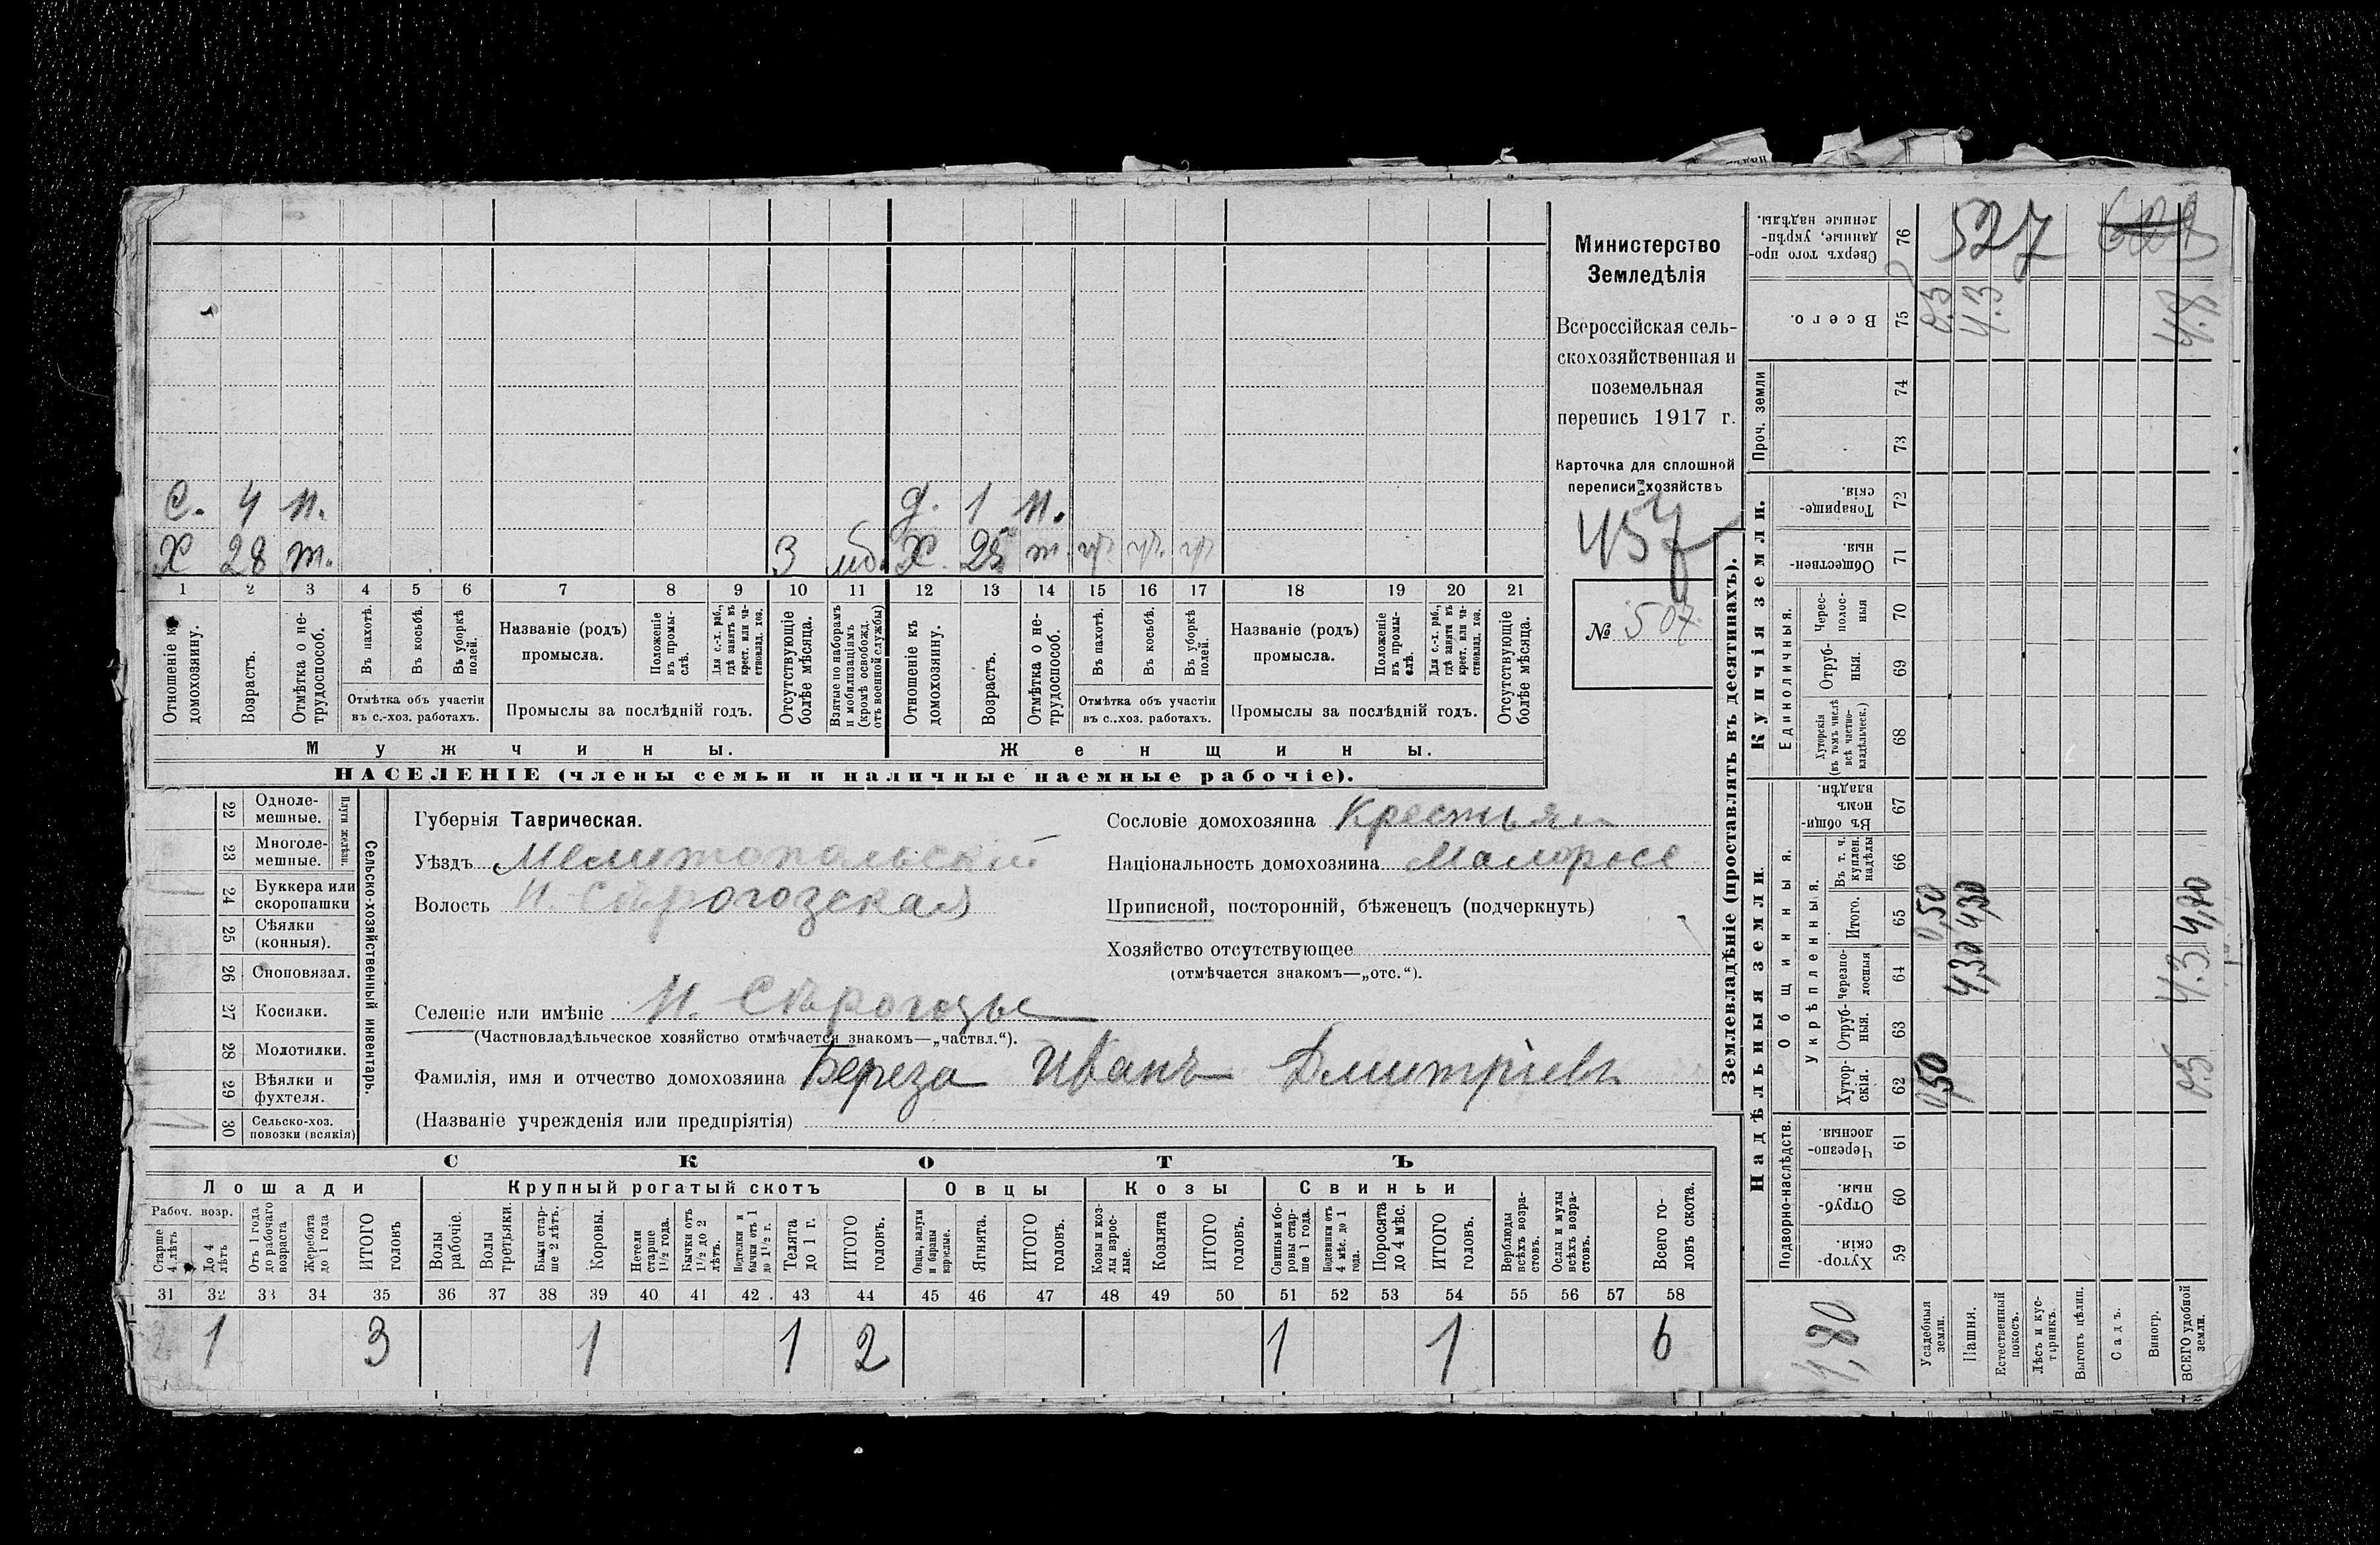 С. 4 н. д. 1 н.
Х 28 т. 3 мб. Х. 25 т.
1 2 3 4 5 6 7 8 9 10 11 12 13 14 15 16 17 18 19 20 21
Отношеніе къ домохозяину.
Возрастъ.
Отмѣтка о не-
трудоспособ.
Въ пахотѣ.
Въ косьбѣ.
Въ уборкѣ
полей.
Отмѣтка объ участіи
въ с.-хоз. работахъ.
Названіе (родъ)
промысла.
Положеніе
въ промы-
слѣ.
Для с.-х. раб.,
гдѣ занятъ въ
крест. или ча-
стновлад. хоз.
Промыслы за послѣдній годъ.
Отсутствующіе
болѣе мѣсяца.
Взятые по наборамъ
и мобилизаціямъ
(кромѣ освобожд.
отъ военной службы)
Отношеніе къ
домохозяину.
Возрастъ.
Отмѣтка о не-
трудоспособ.
Въ пахотѣ.
Въ косьбѣ.
Въ уборкѣ
полей.
Отмѣтка объ участіи
въ с.-хоз. работахъ.
Названіе (родъ)
промысла.
Положеніе
въ промы-
слѣ.
Для с.-х. раб.,
гдѣ занята въ
крест. или ча-
стновлад. хоз.
Промыслы за послѣдній годъ.
Отсутствующіе
болѣе мѣсяца.
Мужчины. Женщины.
НАСЕЛЕНІЕ (члены семьи и наличные наемные рабочіе).
Министерство
Земледѣлія
Всероссійская сель-
скохозяйственная и
поземельная
перепись 1917 г.
Карточка для сплошной
переписи хозяйствъ
457
№ 507
Сельско-хозяйственный инвентарь.
Плуги желѣзн.
22 Одноле-
мешные.
23 Многоле-
мешные.
24 Буккера или
скоропашки
25 Сѣялки
(конныя).
26 Сноповязал.
27 Косилки.
28 Молотилки.
29 Вѣялки и
фухтеля.
30 Сельско-хоз.
повозки (всякія)
Губернія Таврическая.
Уѣздъ Мелитопольскій
Волость Н. Сѣрогозская
Селеніе или имѣніе Н. Сѣрогозы
(Частновладѣльческое хозяйство отмѣчается знакомъ—„частвл.“).
Фамилія, имя и отчество домохозяина Береза Иванъ Дмитріевъ
(Названіе учрежденія или предпріятія)
Сословіе домохозяина Крестьян
Національность домохозяина Малоросс
Приписной, посторонній, бѣженецъ (подчеркнуть)
Хозяйство отсутствующее
(отмѣчается знакомъ—„отс.“).
СКОТЪ
Лошади Крупный рогатый скотъ Овцы Козы Свиньи
Рабоч. возр.
Старше
4 лѣтъ
До 4
лѣтъ
Отъ 1 года
до рабочаго
возраста
Жеребята
до 1 года
ИТОГО
головъ
Волы
рабочіе.
Волы
третьяки.
Быки стар-
ше 2 лѣтъ.
Коровы.
Нетели
старше
1½ года.
Бычки отъ
1½ до 2
лѣтъ.
Подтелки и
бычки отъ 1
до 1½ г.
Телята
до 1 г.
ИТОГО
головъ.
Овцы, валухи
и бараны
взрослые.
Ягнята.
ИТОГО
головъ.
Козы и коз-
лы взрос-
лые.
Козлята
ИТОГО
головъ.
Свиньи и бо-
ровы стар-
ше 1 года.
Подсвинки отъ
4 мѣс. до 1
года.
Поросята
до 4 мѣс.
ИТОГО
головъ.
Верблюды
всѣхъ возра-
стовъ.
Ослы и мулы
всѣхъ возра-
стовъ.
Всего го-
ловъ скота.
31 32 33 34 35 36 37 38 39 40 41 42 43 44 45 46 47 48 49 50 51 52 53 54 55 56 57 58
2 1 3 1 1 2 1 1 6
Землевладѣніе (проставлять въ десятинахъ).
Надѣльныя земли. Купчія земли.
Подворно-наслѣдств.
Общинныя.
Укрѣпленныя.
Единоличныя.
Проч. земли
Хутор-
скія. 59
Отруб-
ныя. 60
Черезпо-
лосныя. 61
Хутор-
скія. 62
Отруб-
ныя. 63
Черезпо-
лосныя 64
Итого. 65
Въ т. ч.
куплен.
надѣлы 66
Въ общин-
номъ
владѣн. 67
Хуторскія
(въ томъ числѣ
всѣ частно-
владѣльческ.) 68
Отруб-
ныя. 69
Черес-
полос-
ныя 70
Обществен-
ныя. 71
Товарище-
скія. 72
73
74
Всего. 75
Сверхъ того про-
данные, укрѣп-
ленные надѣлы. 76
4,80
Усадебныя
земли. 0,50 0,50 0.5
Пашня. 4,30 4,30 4.3
Естественный
покосъ.
Лѣсъ и кус-
тарникъ.
Выгонъ цѣлин.
Садъ.
Виногр.
ВСЕГО удобной
земли. 0.5 4.3 4,80 4.8
527